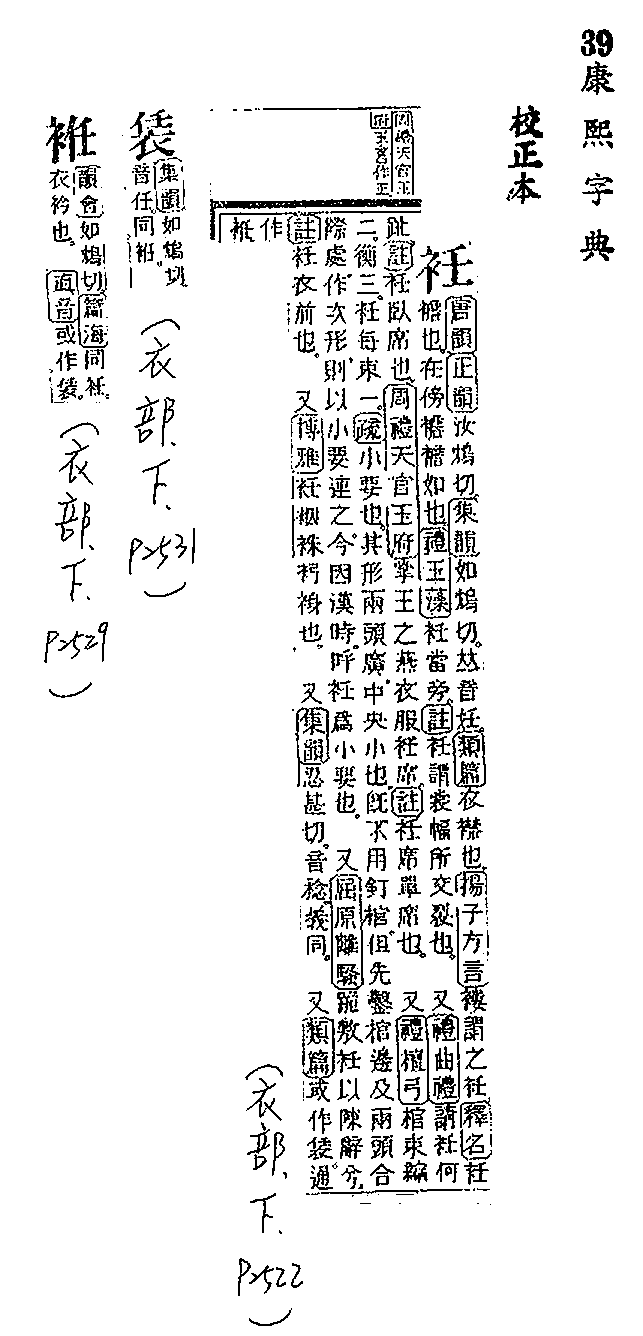 39康熙字典
校正本
衽
唐韻正韻汝鴆切集韻如鴆切𠀤音妊類篇衣襟也揚子方言褸謂之衽釋名衽
襜也在傍襜襜如也禮玉藻衽當旁註衽謂裳幅所交裂也 又禮曲禮請衽何
趾註衽臥席也周禮天官玉府掌王之燕衣服衽席註衽席單席也 又禮檀弓棺束縮
二衡三衽每束一疏小要也其形兩頭廣中央小也旣不用釘棺但先鑿棺邊及兩頭合
際處作坎形則以小要連之今因漢時呼衽爲小要也 又屈原離騷跪敷衽以陳辭兮
註衽衣前也 又博雅衽裀袾袔褙也 又集韻忍甚切音稔義同 又類篇或作袵通
作
(衣部、下、P2522)
集韻如鴆切
音任同袵
(衣部、下、P2531)
袵
韻會如鴆切篇海同衽
衣衿也直音或作
(衣部、下、P2529)